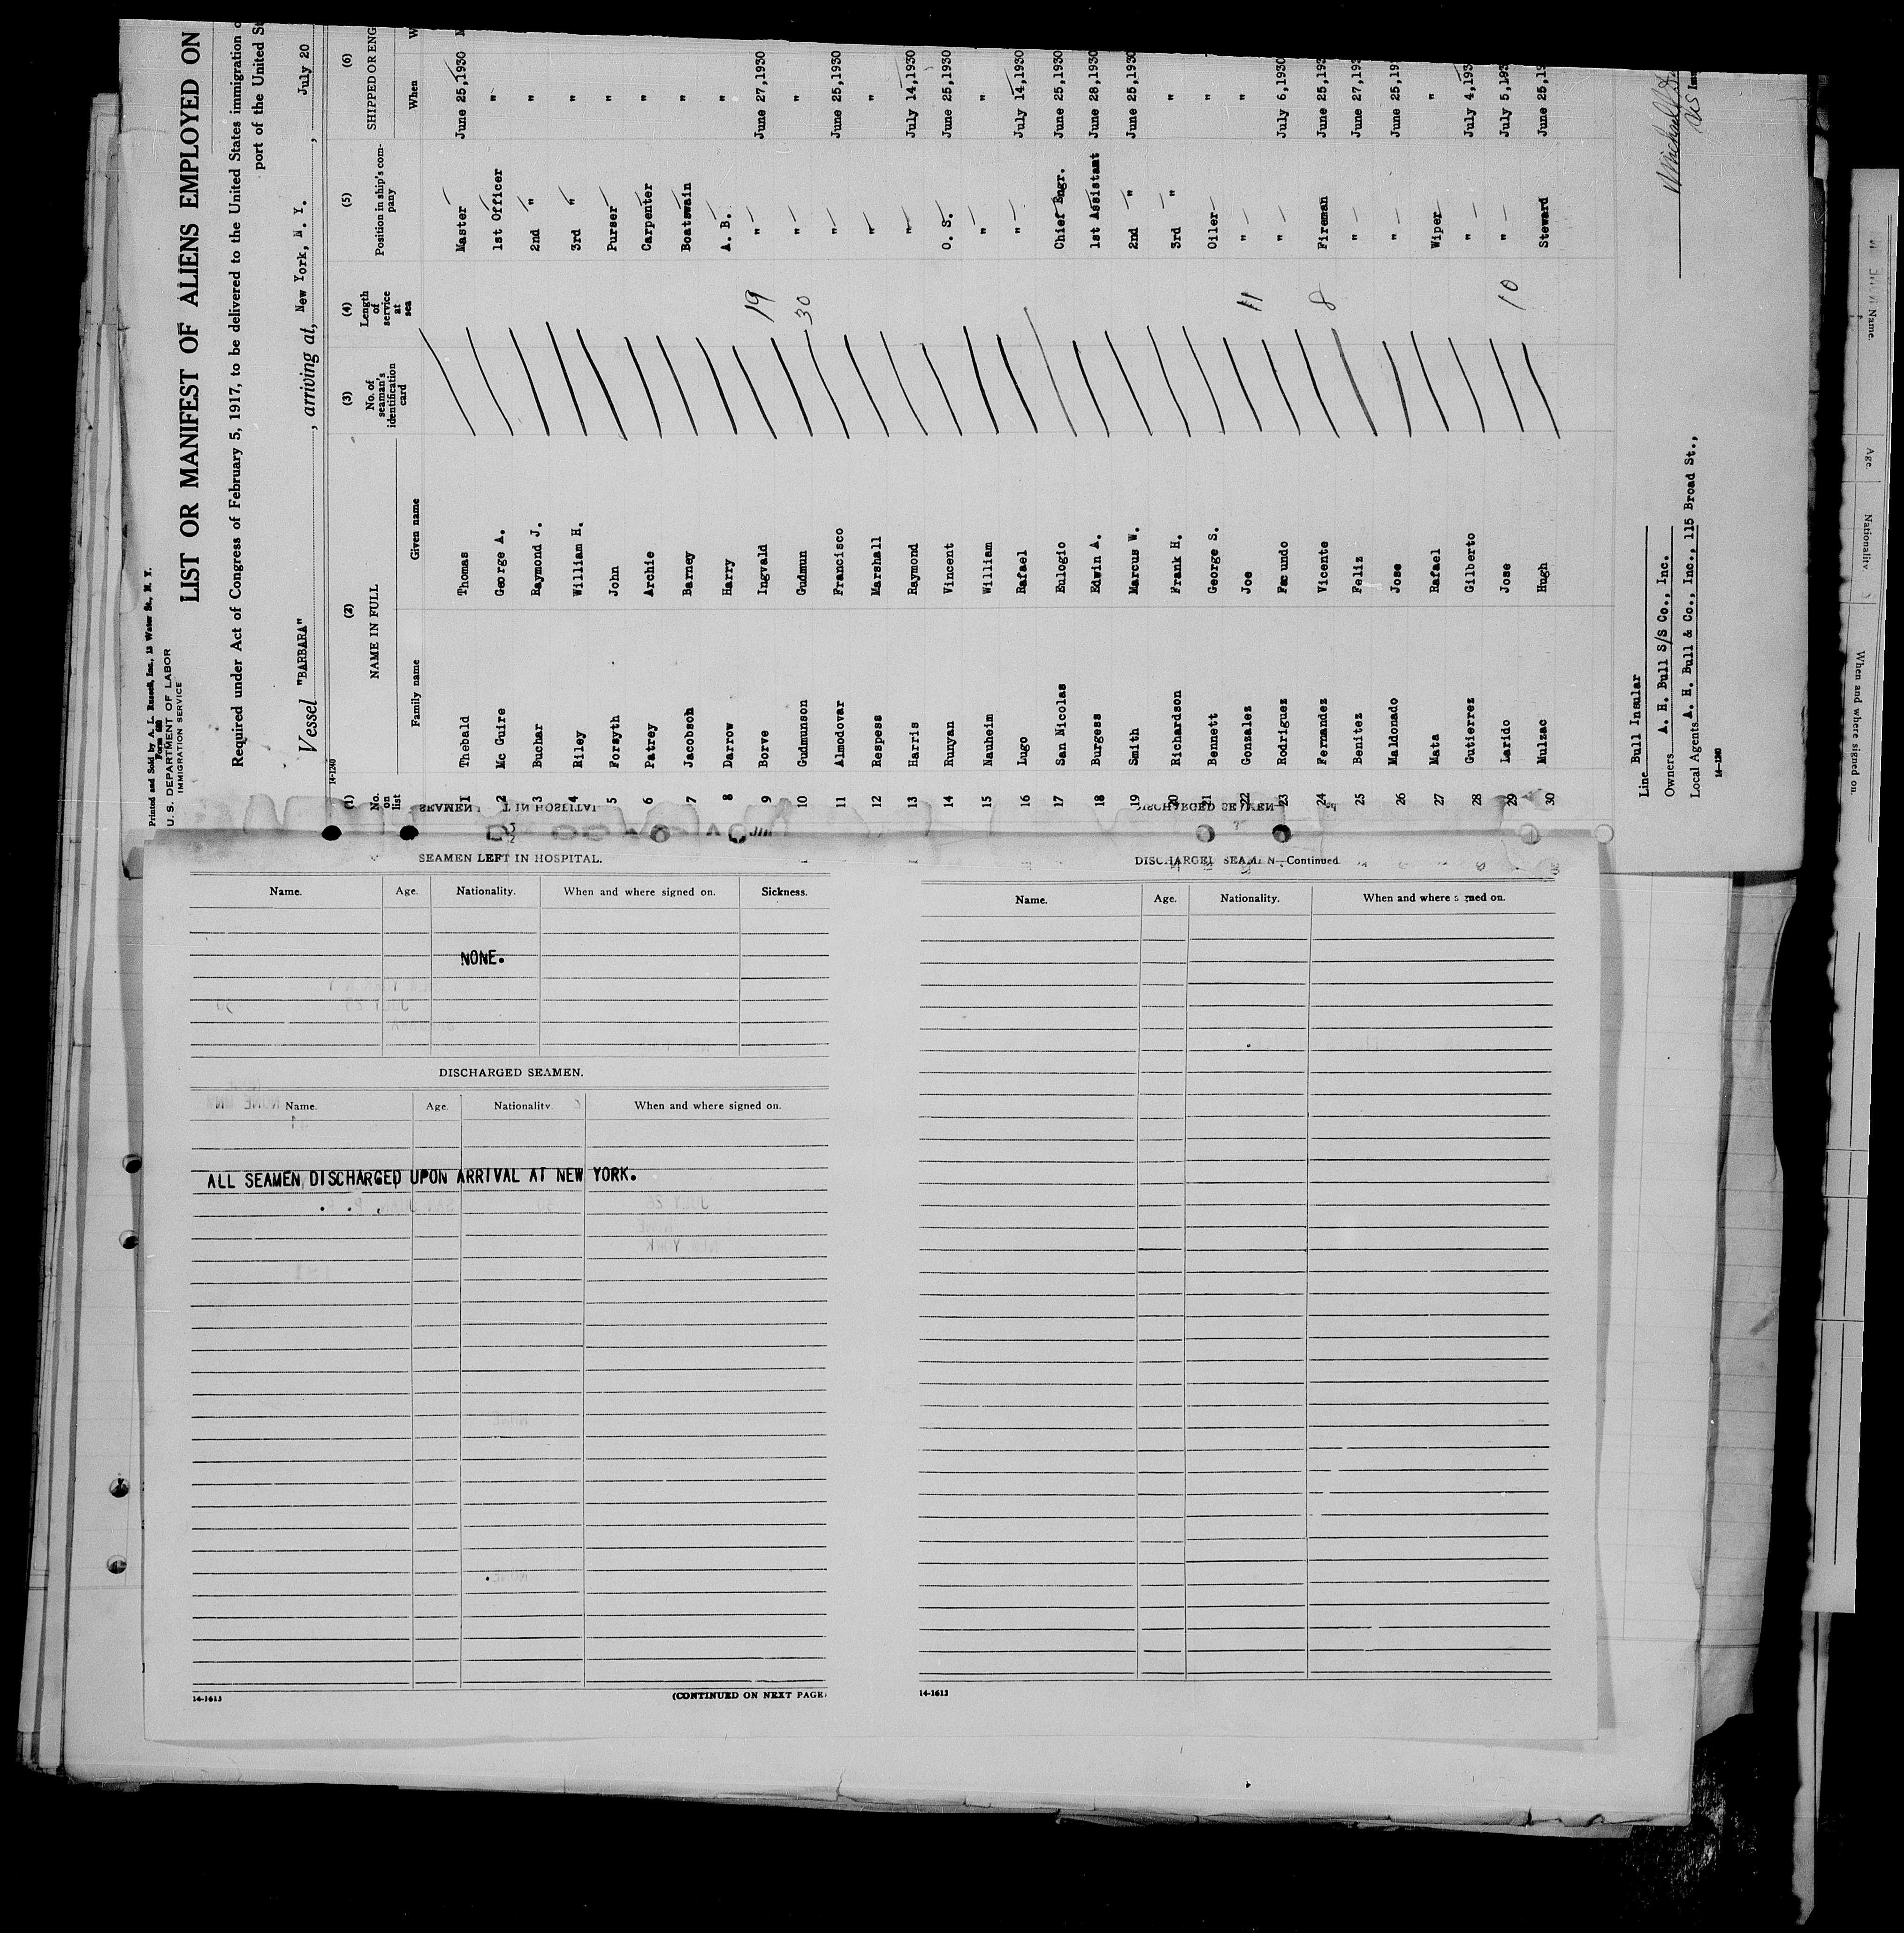 Printed and Sold by A. L. Russell, Inc., 13 Water St., N. Y.
U. S. DEPARTMENT OF LABOR
IMMIGRATION SERVICE
LIST OR MANIFEST OF ALIENS EMPLOYED ON
Required under Act of Congress of February 5, 1917, to be delivered to the United States immigration
port of the United
Vessel "BARBARA" , arriving at, New York, N. Y. , July 20
14-1240
(1) No. on list (2) NAME IN FULL (3) No. of seaman's identification card (4) Length of service at sea (5) Position in ship's company (6) SHIPPED OR ENG
Family name Given name When
1 Thebald Thomas Master June 25,1930
2 Mc Guire George A. 1st Officer "
3 Buchar Raymond J. 2nd " "
4 Riley William H. 3rd " "
5 Forsyth John Purser "
6 Patrey Archie Carpenter "
7 Jacobsoh Barney Boatswain "
8 Darrow Harry A. B. "
9 Borve Ingvald 19 " June 27,1930
10 Gudmunson Gudmun 30 " "
11 Almodovar Francisco " June 25,1930
12 Respess Marshall " "
13 Harris Raymond " July 14,1930
14 Runyan Vincent O. S. June 25,1930
15 Nauheim William " "
16 Lugo Rafael " July 14,1930
17 San Nicolas Eulogio Chief Engr. June 25,1930
18 Burgess Edwin A. 1st Assistant June 28,1930
19 Smith Marcus W. 2nd " June 25,1930
20 Richardson Frank H. 3rd " "
21 Bennett George S. Oiler "
22 Gonzalez Joe 11 " "
23 Rodriguez Facundo " July 6,1930
24 Fernandez Vicente 8 Fireman June 25,193
25 Benitez Feliz " June 27,193
26 Maldonado Jose " June 25,19
27 Mata Rafael Wiper "
28 Gutierrez Gilberto " July 4,193
29 Larido Jose 10 " July 5,193
30 Mulzac Hugh Steward June 25,19
Line Bull Insular
Owners A. H. Bull S/S Co., Inc.
Local Agents A. H. Bull & Co., Inc., 115 Broad St.,
14-1240
SEAMEN LEFT IN HOSPITAL.
Name. Age. Nationality. When and where signed on. Sickness.
NONE.
DISCHARGED SEAMEN.
Name. Age. Nationality. When and where signed on.
ALL SEAMEN DISCHARGED UPON ARRIVAL AT NEW YORK.
14-1613
(CONTINUED ON NEXT PAGE
DISCHARGED SEAMEN—Continued
Name. Age. Nationality. When and where signed on.
14-1613
Name
Age.
Nationality.
When and where signed on.